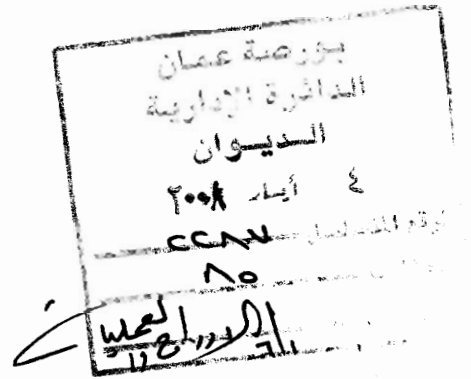 بورصة عمان
الدائرة الإدارية
الديوان
٤ أيار ٢٠٠٨
الرقم المتسلسل ٢٢٨٧
٨٥